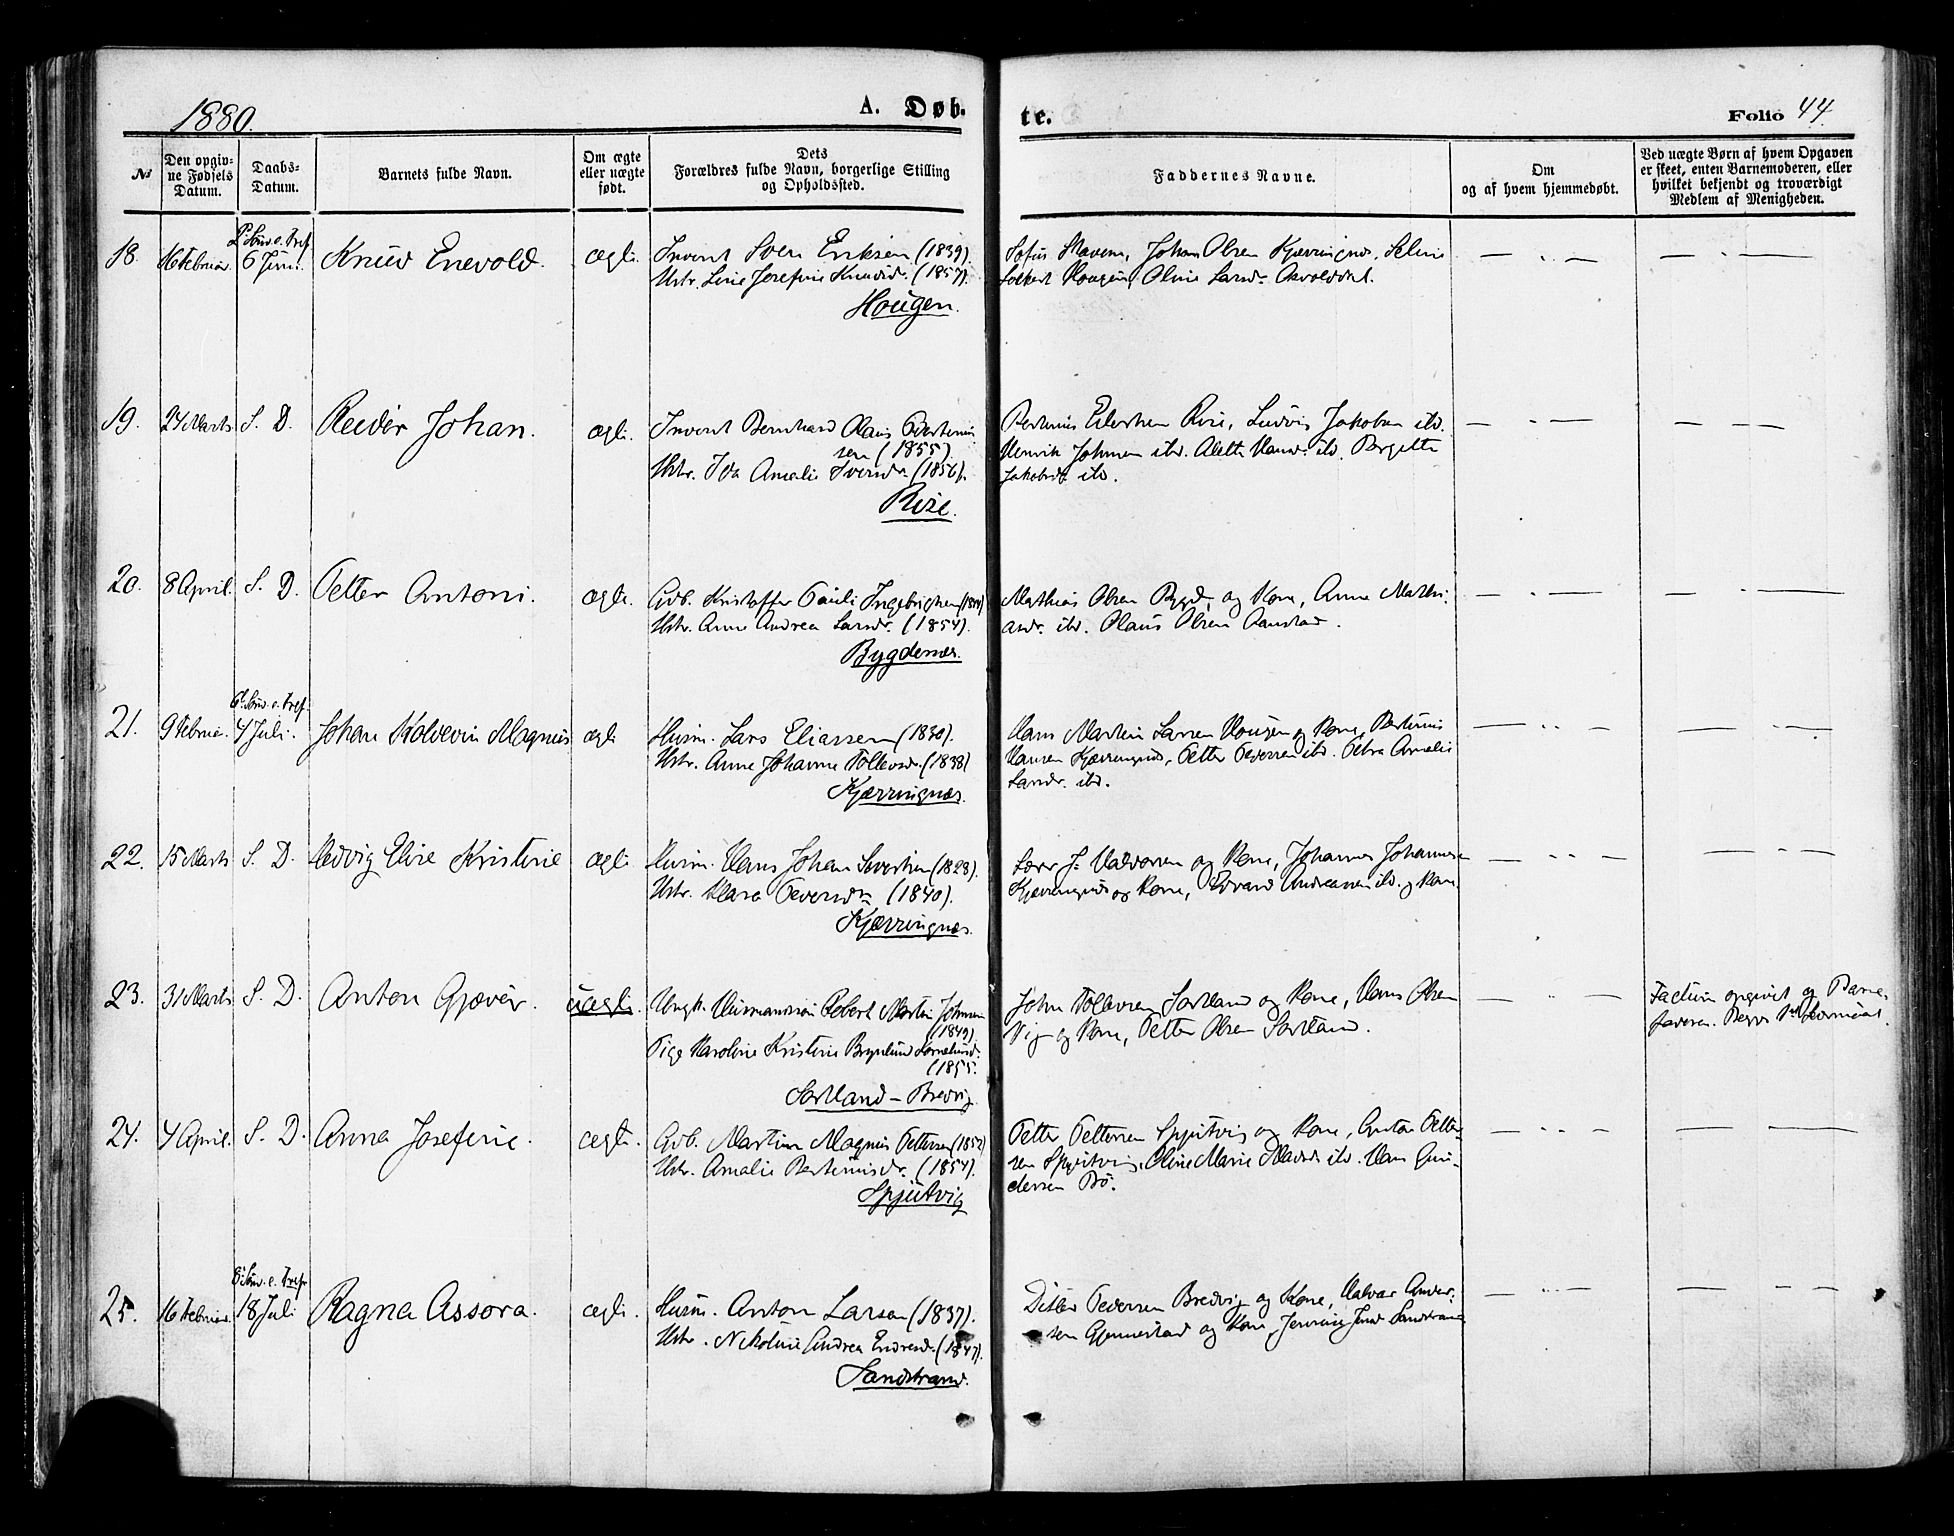 1880.
A. Døb.
te.
Folio 44.
№
Den opgiv-
ne Fødsels
Datum.
Daabs-
Datum.
Barnets fulde Navn.
Om ægte
eller uægte
født.
Dets
Forældres fulde Navn, borgerlige Stilling
og Opholdssted.
Faddernes Navne.
Om
og af hvem hjemmedøbt.
Ved uægte Børn af hvem Opgaven
er skeet, enten Barnemoderen, eller
hvilket bekjendt og troværdigt
Medlem af Menigheden.
18. 16 Februar. 6 Juni. Knud Enevold. ægte.
Indr. Sven Eriksen (1839).
Hstr. Line Josefine Knudsd. (1857).
Hougen.
Johan Olsen Kjærringnæs,
Hougen, Oline Larsd.
19. 24 Marts S. D. Reidar Johan. ægte.
Bernhard Olaus Bertheus
sen (1855)
Hstr. Ida Amalie Svensd. (1856).
Rise.
Rise, Ludvig Jakobsen ibd.
Henrik Johnsen ibd. Aletta Hansd. ibd. Bergitte
Jakobsd. ibd.
20. 8 April. S. D. Petter Antoni. ægte.
Gdb. Kristoffer Pauli Ingebrigtsen
Hstr. Anne Andrea Larsd. (1854).
Bygdenæs.
Mathias Olsen Bygd. og Kone, Anne Mathi-
asdr. ibd. Olaus Olsen
21. 9 Februar. 4 Juli. Johan Kolbevin Magnus ægte
Husm. Lars Eliassen (1830).
Hstr. Anne Johanna Tollevsd. (1838)
Kjærringnæs.
Hans Martin Larsen Hougen og Kone,
Hansen Kjærringnæs, Petter Pedersen ibd. Petra Amalie
Larsdr. ibd.
22. 15 Marts S. D. Hedvig Elise Kristine ægte
Husm. Hans Johan Sivertsen (1828).
Hstr. Klara Pedersdr. (1840).
Kjærringnæs.
Lærer J. Halvorsen og Kone, Johannes Johannesen
Kjærringnæs og Kone, Edvard Andreassen ibd. og Kone.
23. 31 Marts S. D. Anton Gjæver. uægte.
Ungk. Husmandssøn Robert Martin Johnsen
(1849)
Pige Karoline Kristine
(1855.
Sortland – Bredvig
John Tollevsen Sortland og Kone, Hans Olsen
Vig og Kone, Petter Olsen Sortland.
opgivet og Barne-
faderen.
24. 4 April. S. D. Anna Josefine. ægte.
Gdb. Martin Magnus Pettersen (1852)
Hstr. Amalie Berteusdr. (1854).
Spjutvig
Petter Pettersen Spjutvig og Kone, Anton Petter-
sen Spjutvig, Oline Marie Madsd. ibd. Hans Gun-
dersen Bø.
25. 16 Februar. 18 Juli Ragna Assora. ægte.
Husm. Anton Larsen (1837).
Hstr. Nikoline Andrea Endresd. (1847).
Sandstrand.
Ditlev Pedersen Bredvig og Kone, Halvar Ander-
sen Gjennestad og Kone, Jensd. Sandstrand